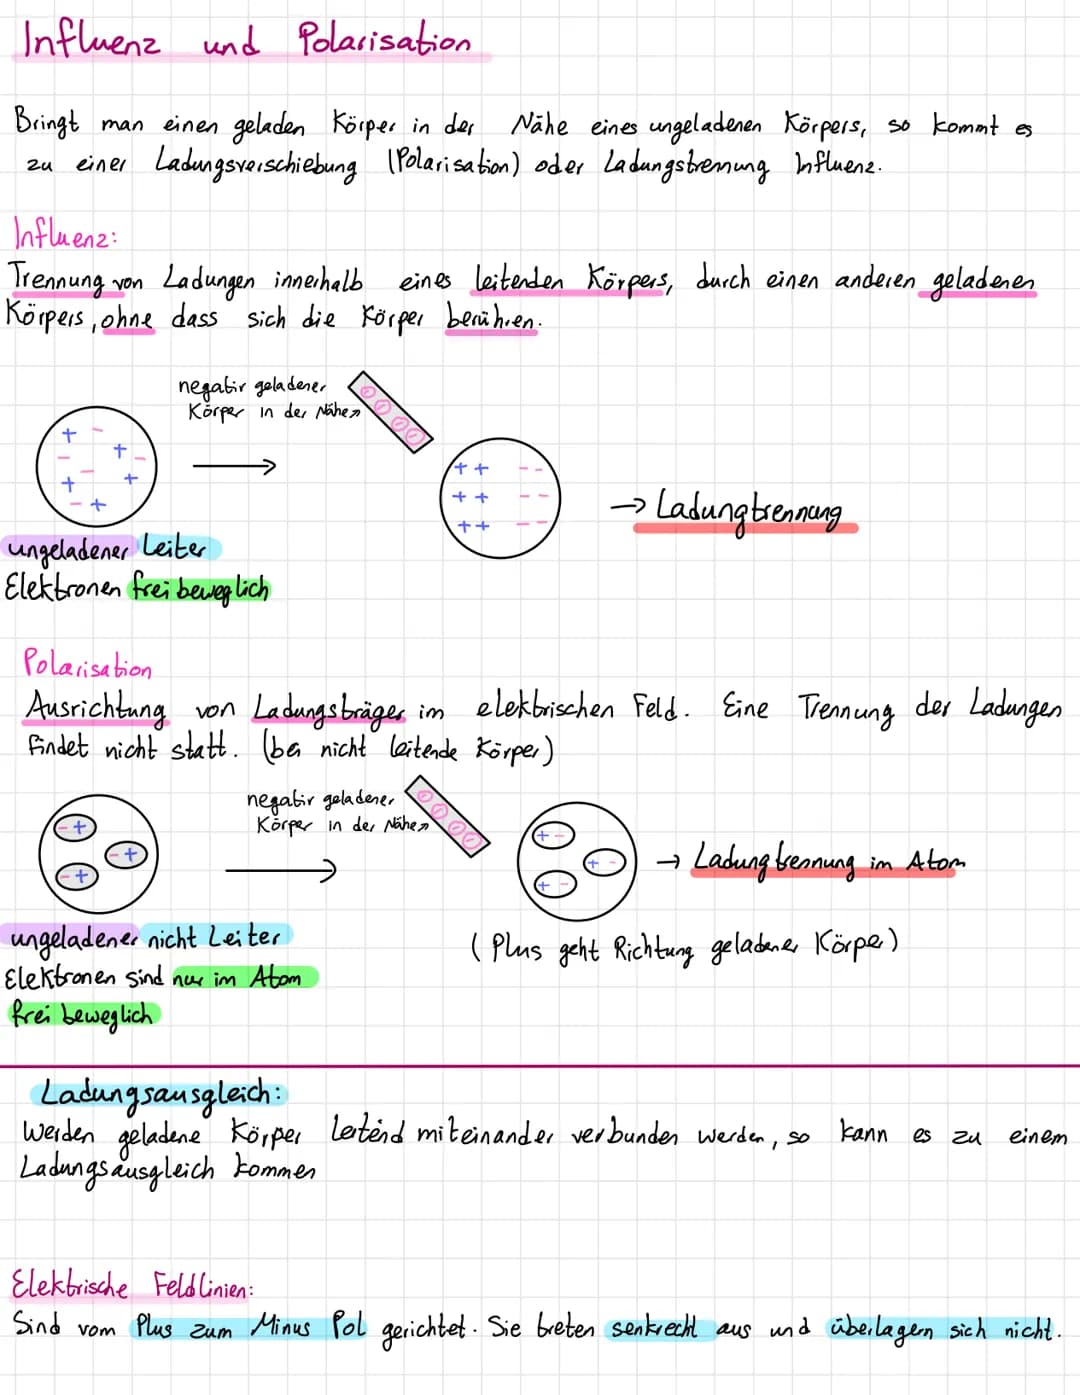 Influenz und Polarisation
Bringt man einen geladen Körper in der Nähe eines ungeladenen Körpers, so kommt es
zu einer Ladungsverschiebung (Polarisation) oder Ladungstrennung Influenz.
Influenz:
Trennung von Ladungen innerhalb eines leitenden Körpers, durch einen anderen geladenen
Körpers, ohne dass sich die Körper berühren.
negativ geladener
Körper in der Nähe
+ - + - - + - + + - +
- - - -
+ + - -
+ + - -
+ + - -
→ Ladungtrennung
ungeladener Leiter
Elektronen frei beweglich
Polarisation
Ausrichtung von Ladungsträger im elektrischen Feld. Eine Trennung der Ladungen
findet nicht statt. (bei nicht leitende Körper)
negativ geladener
Körper in der Nähe
- + - + - +
- - - -
+ - + - + -
→ Ladungtrennung im Atom
ungeladener nicht Leiter
(Plus geht Richtung geladener Körper)
Elektronen sind nur im Atom
frei beweglich
Ladungsausgleich:
Werden geladene Körper leitend miteinander verbunden werden, so kann es zu einem
Ladungsausgleich kommen
Elektrische Feldlinien:
Sind vom Plus zum Minus Pol gerichtet. Sie treten senkrecht aus und überlagern sich nicht.